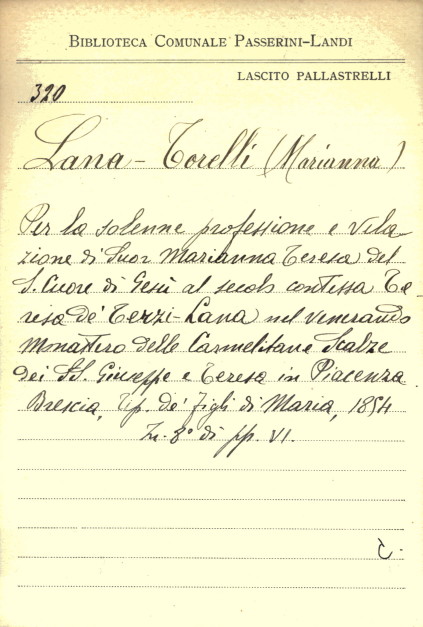 BIBLIOTECA COMUNALE PASSERINI-LANDI
LASCITO PALLASTRELLI
320
Lana-Torelli (Marianna)
Per la solenne professione e vela
zione di Suor Marianna Teresa del
S. Cuore di Gesù al secolo contessa Te-
resa de' Terzi-Lana nel venerando
Monastero delle Carmelitane Scalze
dei SS. Giuseppe e Teresa in Piacenza.
Brescia, Tip. de' figli di Maria, 1854
In. 8° di pp. VI.